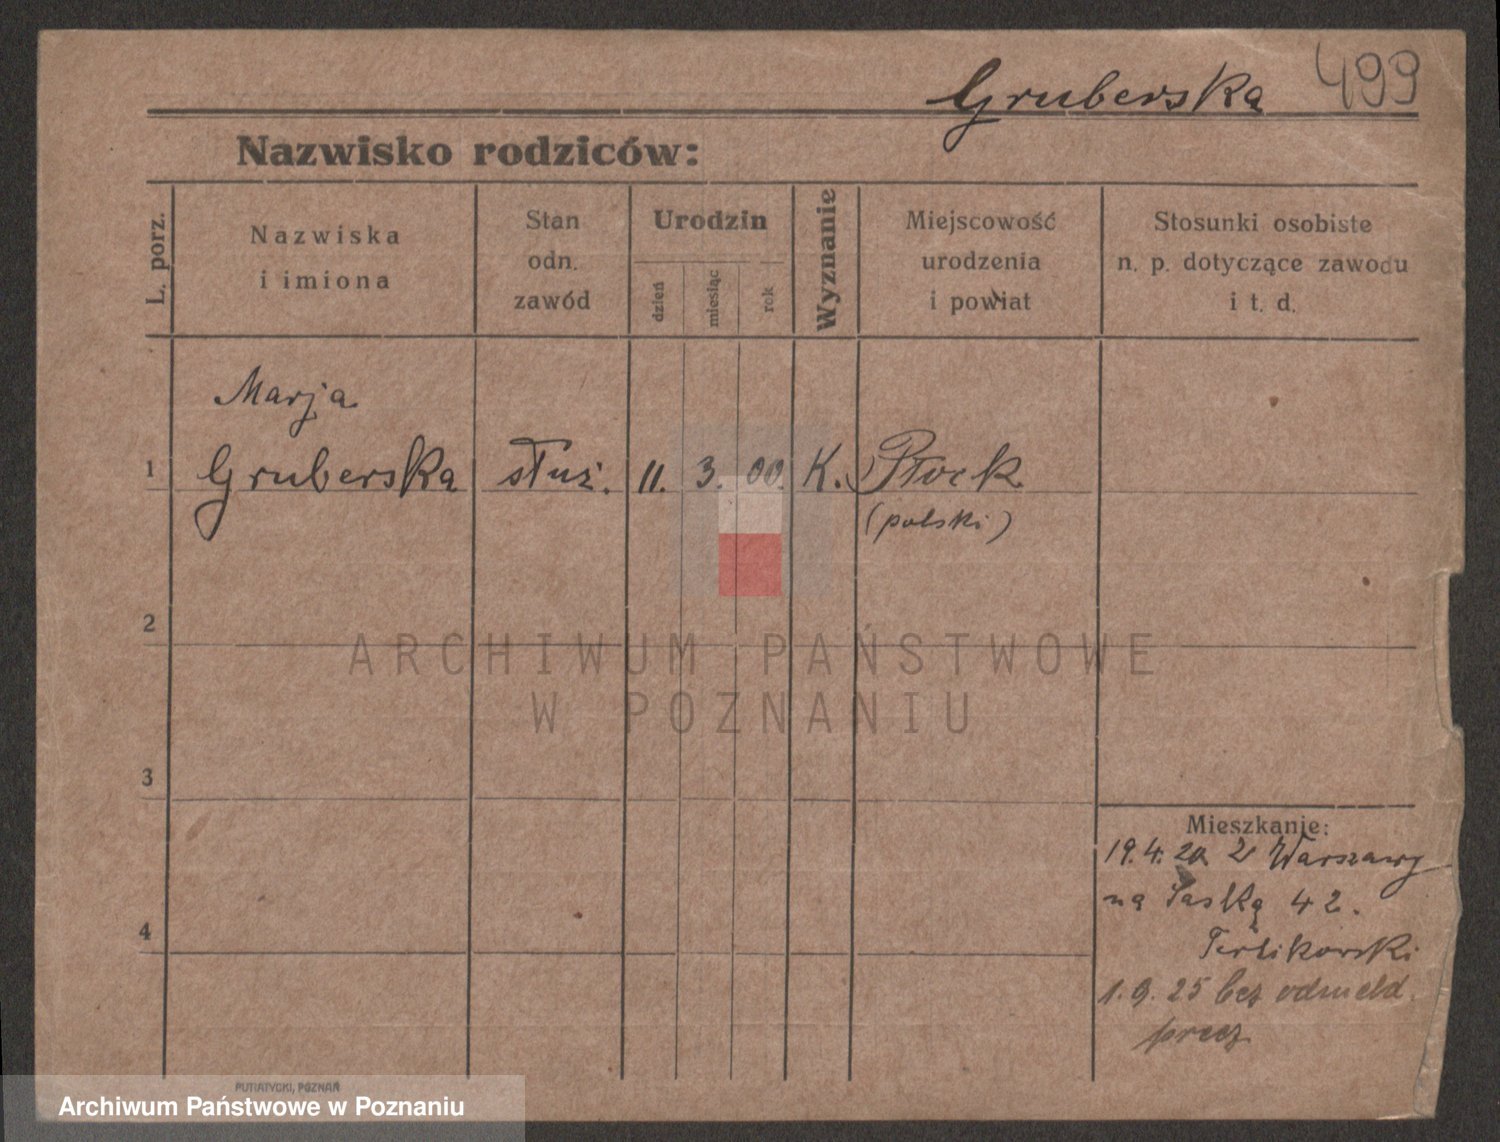 Gruberska 499
Nazwisko rodziców:
L. porz.
Nazwiska
i imiona
Stan
odn.
zawód
Urodzin
dzień
miesiąc
rok
Wyznanie
Miejscowość
urodzenia
i powiat
Stosunki osobiste
n. p. dotyczące zawodu
i t. d.
Marja
1 Gruberska służ. 11. 3. 00. K. Płock
(polski)
2
3
4
Mieszkanie:
19.4.20 z Warszawy
na Saską 42.
Terlikowski
1.9.25 bez odmeld.
precz
PUTIATYCKI, POZNAŃ
ARCHIWUM PAŃSTWOWE
W POZNANIU
Archiwum Państwowe w Poznaniu